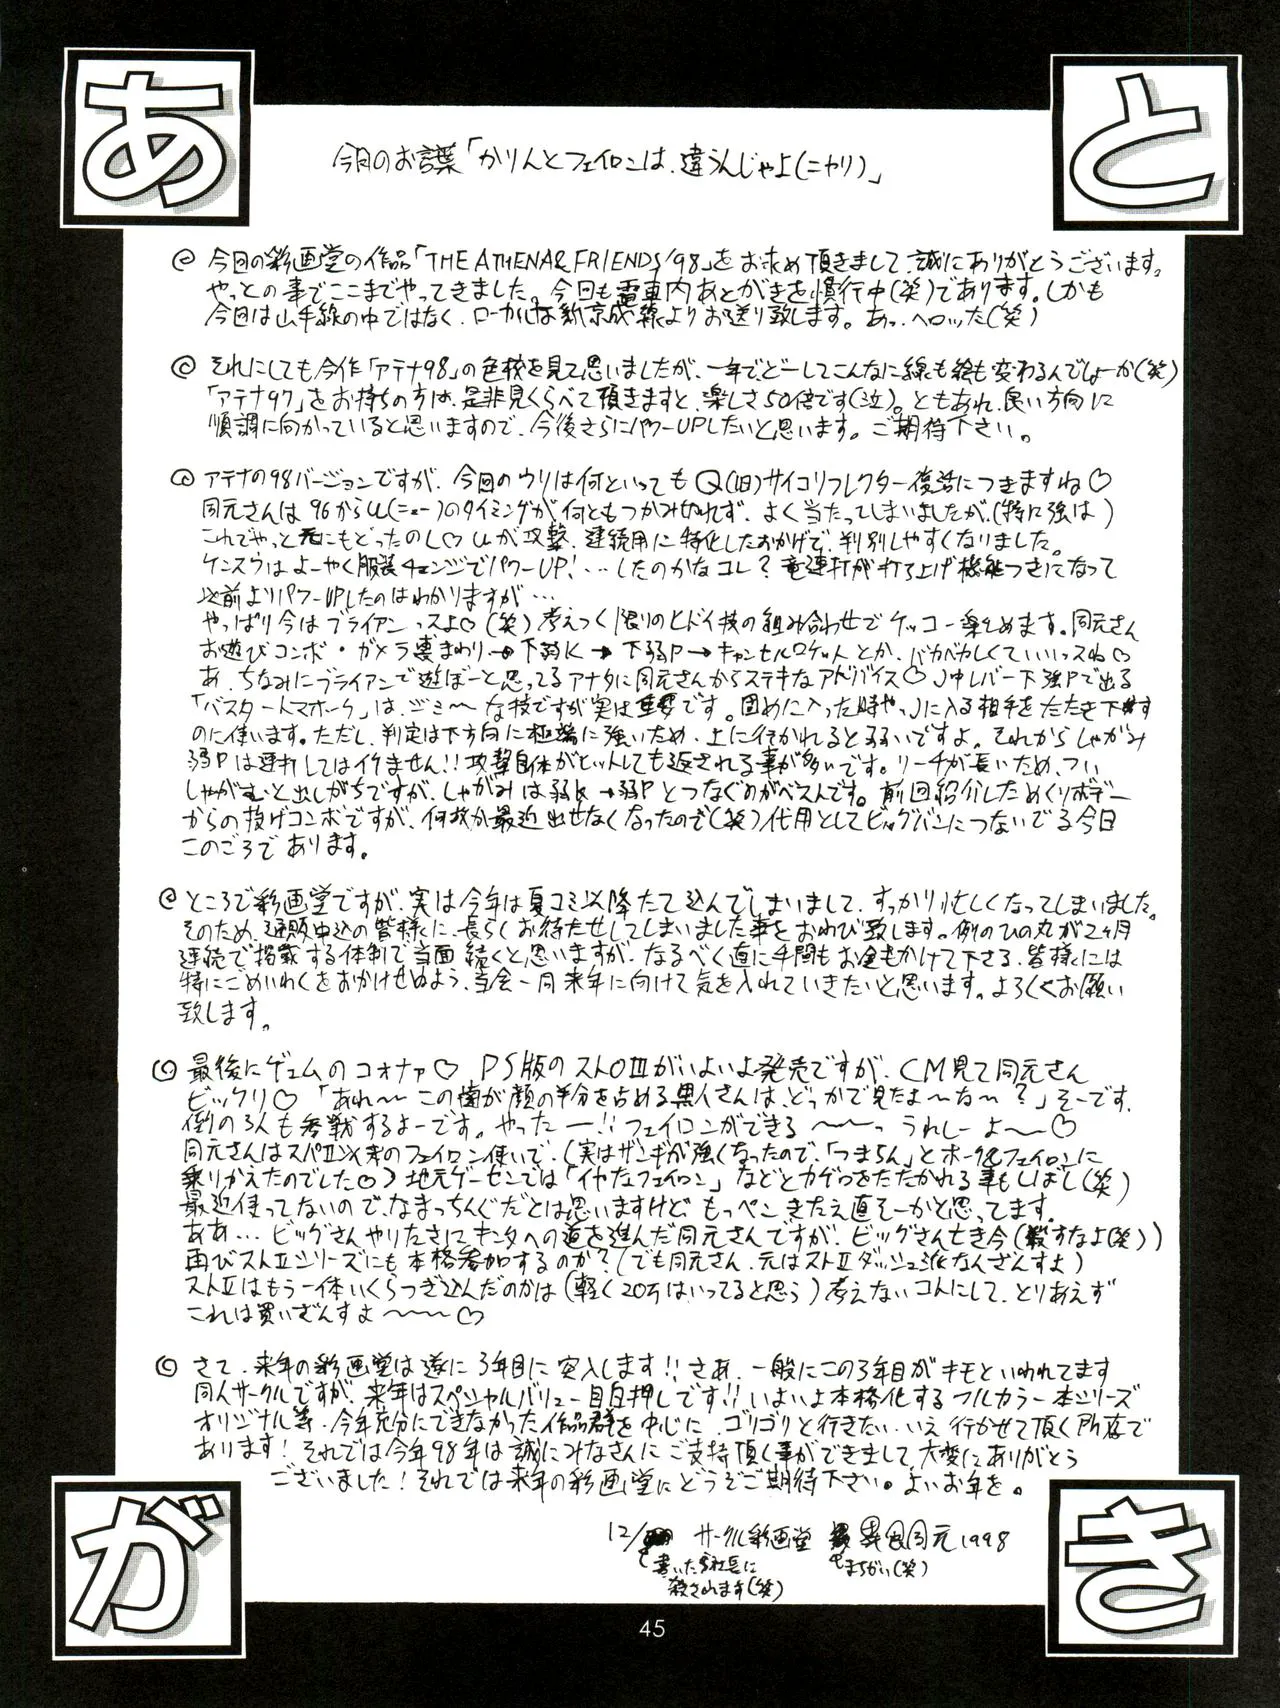 あとがき
今月のお言葉「かりんとフェイロンは、違うんじゃよ(ニヤリ)」
今回の彩画堂の作品「THE ATHENA&FRIENDS'98」をお求め頂きまして、誠にありがとうございます。
やっとの事でここまでやってきました。今回も電車内あとがきを慣行中(笑)であります。しかも
今回は山手線の中ではなく、ローカルな新京成線よりお送り致します。あっ、ヘロッた(笑)
それにしても今作「アテナ98」の色校を見て思いましたが、一年で、どーしてこんなに線も絵も変わるんでしょーか(笑)
「アテナ97」をお持ちの方は、是非見くらべて頂きますと、楽しさ50倍です(泣)。ともあれ、良い方向に
順調に向かっていると思いますので、今後さらにパワーUPしたいと思います。ご期待下さい。
アテナの98バージョンですが、今回のウリは何といっても(旧)サイコリフレクター復活につきますね♡
同元さんは96から(ニュー)のタイミングが、何ともつかみ切れず、よく当たってしまいましたが、(特に強は)
これでやっと元にもどったのし♡ が攻撃、連続用に特化したおかげで、判別しやすくなりました。
ケンスウはよーやく服装チェンジでパワーUP!…したのかなコレ?竜連打が打ち上げ機能つきになって
以前よりパワーUPしたのはわかりますが…
やっぱり今はブライアンっスよ♡(笑)考えつく限りのヒドイ技の組み合わせでケッコー楽しめます。同元さん
お遊びコンボ・ガメラ裏まわり→下弱K→下弱P→キャンセルロケットとか、バカバカしくていいっスね♡
あ、ちなみにブライアンで遊ぼーと思ってるアナタに同元さんからステキなアドバイス♡J中レバー下強Pで出る
「バスタートマホーク」は、ジミ〜な技ですが実は重要です。固めに入った時や、Jに入る相手をたたき下す
のに使います。ただし、判定は下方向に極端に強いため、上に行かれると弱いですよ。それからしゃがみ
弱Pは連打してはイケません!!攻撃自体がヒットしても返される事が多いです。リーチが長いため、つい
しゃがむと出しがちですが、しゃがみは弱K→弱Pとつなぐのがベストです。前回紹介しためくりボデー
からの投げコンボですが、何故か最近出せなくなったので(笑)代用としてビッグバンにつないでる今日
このごろであります。
ところで彩画堂ですが、実は今年は夏コミ以降たて込んでしまいまして、すっかり忙しくなってしまいました。
そのため、通販申込の皆様に、長らくお待たせしてしまいました事をおわび致します。例のひの丸が2ヶ月
連続で掲載する体制で当面続くと思いますが、なるべく直に手間もお金もかけて下さる、皆様には
特にごめいわくをおかけせぬよう、当会一同来年に向けて気を入れていきたいと思います。よろしくお願い
致します。
最後にゲェムのコォナァ♡ PS版のストIIIがいよいよ発売ですが、CM見て同元さん
ビックリ♡「あれ〜〜この歯が顔の半分を占める黒人さんは、どっかで見たよ〜な〜?」そーです、
例の3人も参戦するよーです。やったー!!フェイロンができる〜〜っうれしーよ〜♡
同元さんはスパIIX末のフェイロン使いで、(実はザンギが強くなったので、「つまらん」とホーク&フェイロンに
乗りかえたのでした♡)地元ゲーセンでは「イヤなフェイロン」などとカゲ口をたたかれる事もしばし(笑)
最近使ってないので、なまっちんぐだとは思いますけど もっぺんきたえ直そーかと思ってます。
ああ…ビッグさんやりたさにキンタへの道を進んだ同元さんですが、ビッグさん亡き今(殺すなよ(笑))
再びストIIシリーズにも本格参加するのか?(でも同元さん、元はストIIダッシュ派なんざんすよ)
ストIIはもう一体いくらつぎ込んだのかは(軽く20万はいってると思う)考えないコトにして、とりあえず
これは買いざんすよ〜〜〜♡
さて、来年の彩画堂は遂に3年目に突入します!!さあ、一般にこの3年目がキモといわれてます
同人サークルですが、来年はスペシャルバリュー目白押しです!!いよいよ本格化するフルカラー本シリーズ
オリジナル等、今年充分にできなかった作品群を中心に、ゴリゴリと行きたい、いえ行かせて頂く所存で
あります!それでは今年98年は誠にみなさんにご支持頂く事ができまして、大変にありがとう
ございました!それでは来年の彩画堂にどうぞご期待下さい。よいお年を。
12/ サークル彩画堂 同元1998
書いたら社長に
殺されます(笑)
まちがい(笑)
45